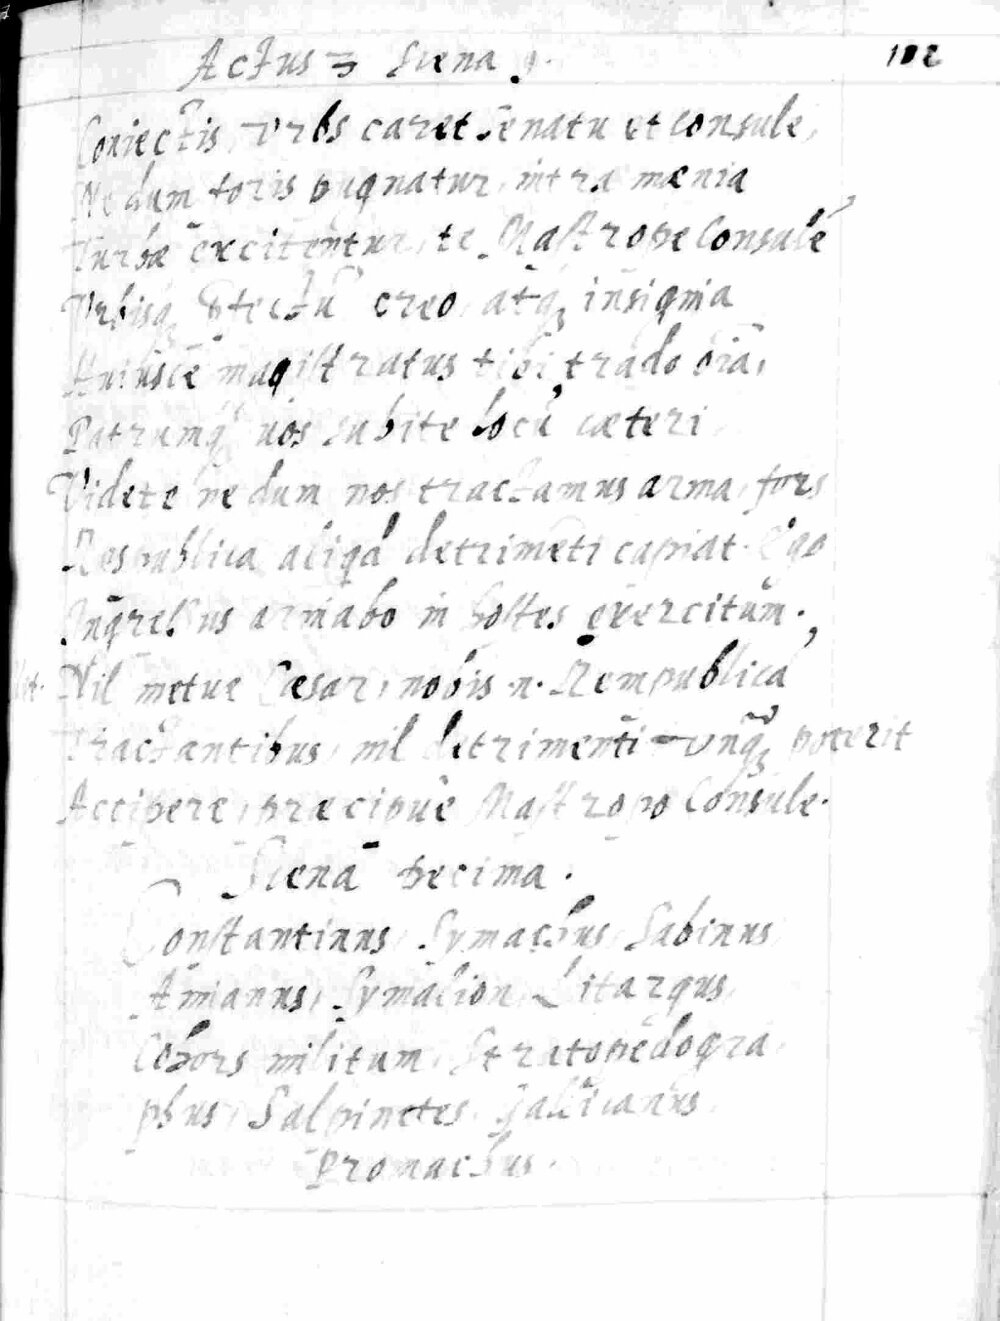 Actus 3 Scena 9. 102
Coniectis, Vrbs caret senatu et consule,
Ne dum foris pugnatur, intra mænia
Turbæ excitentur, te Mastrope Consulē
Vrbisq; creo, atq; insignia
Huiusce magistratus tibi trado oīa,
Patrumq; uos subite locū cæteri
Videte ne dum nos tractamus arma, fors
Respublica aliqd detrimēti capiat. Ego
Ingressus armabo in hostes exercitum.
Nil metue Cæsar, nobis .n. Rempublicā
Tractantibus, nil detrimenti vnq; poterit
Accipere, præcipuè Mastropo Consule.
Scena Decima.
Constantinus, Symachus, Sabinus,
Amianus, Symalion, Litargus,
Cohors militum, Stratopedogra
phus, Salpinctes, Gallicanus.
Promachus.